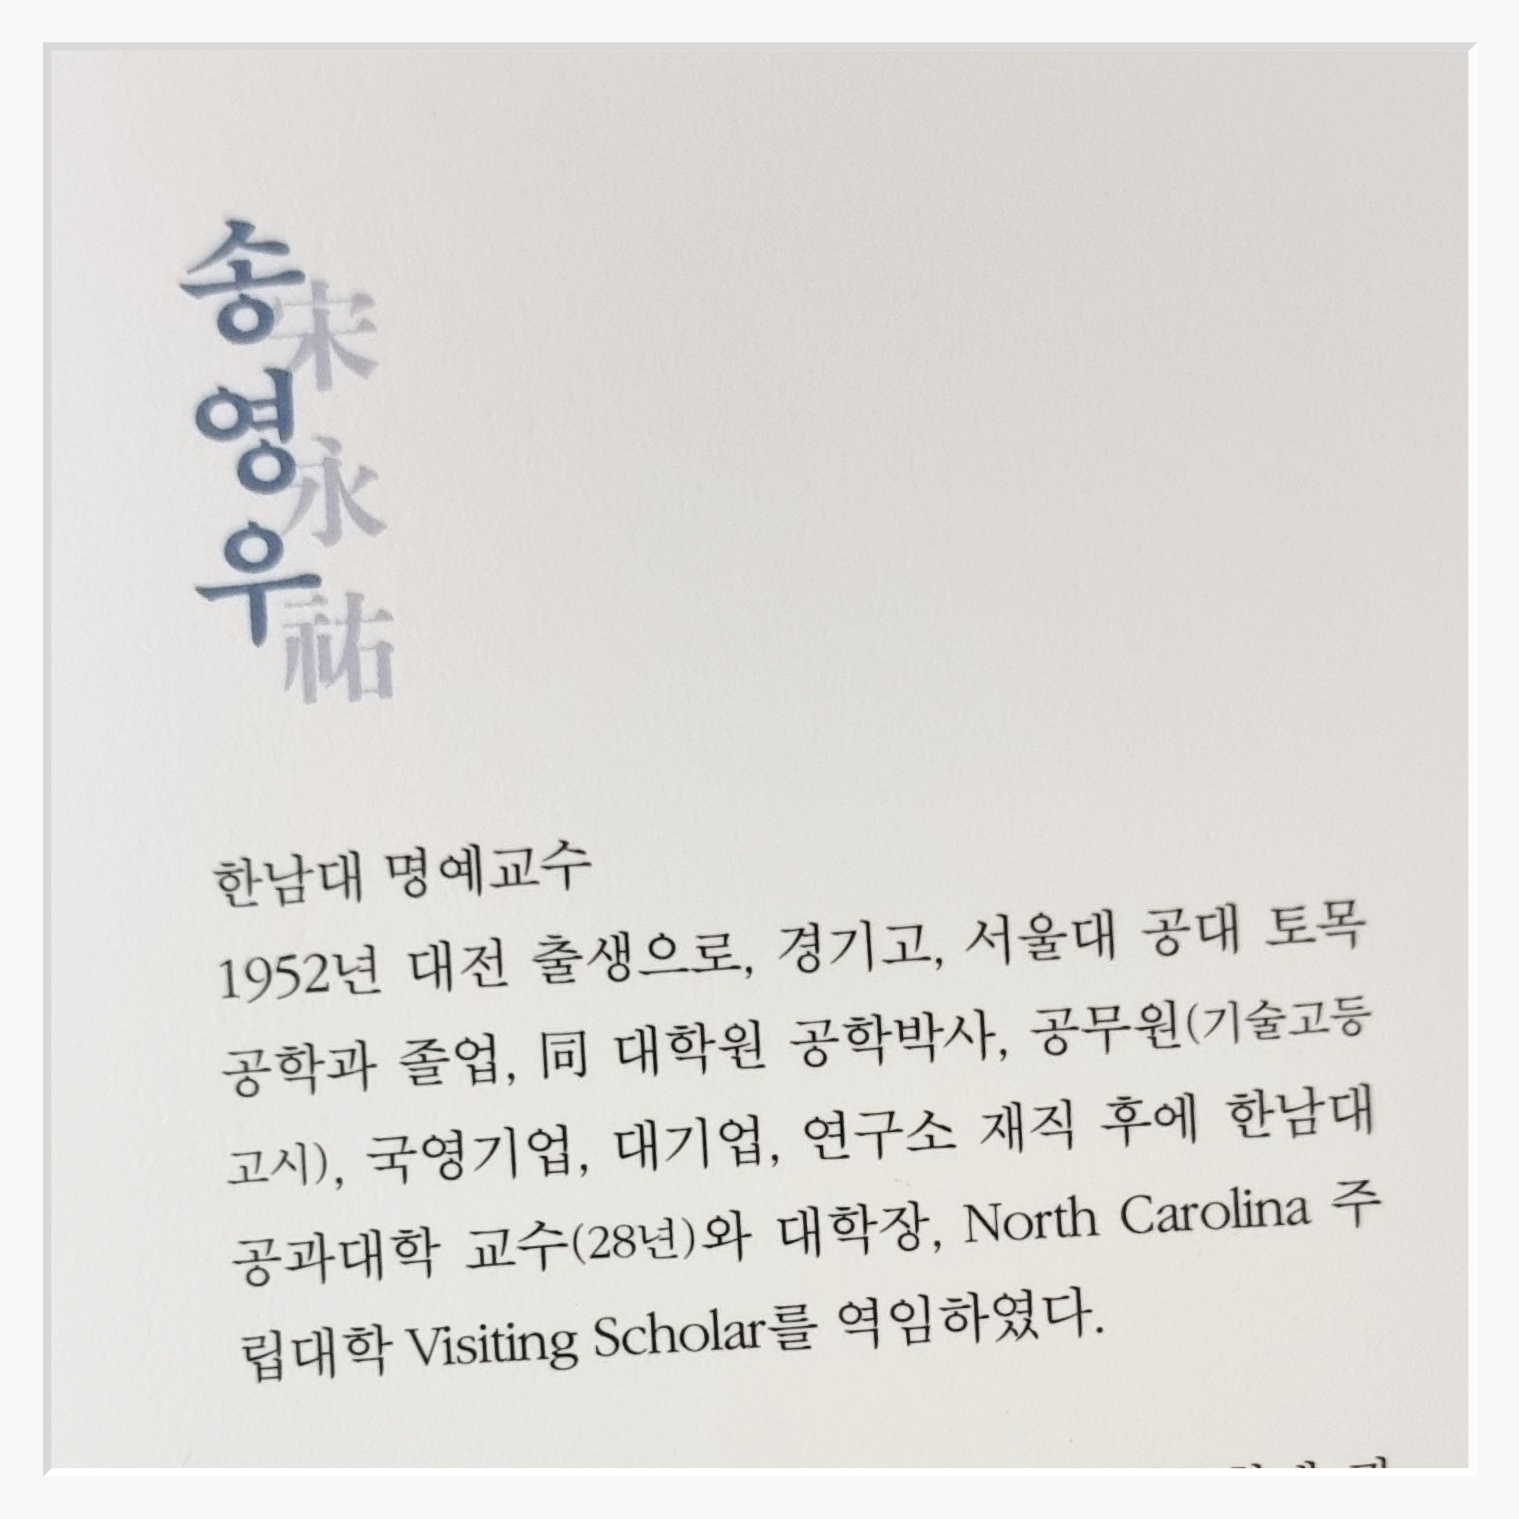 송영우
宋永祐
한남대 명예교수
1952년 대전 출생으로, 경기고, 서울대 공대 토목
공학과 졸업, 同 대학원 공학박사, 공무원(기술고등
고시), 국영기업, 대기업, 연구소 재직 후에 한남대
공과대학 교수(28년)와 대학장, North Carolina 주
립대학 Visiting Scholar를 역임하였다.